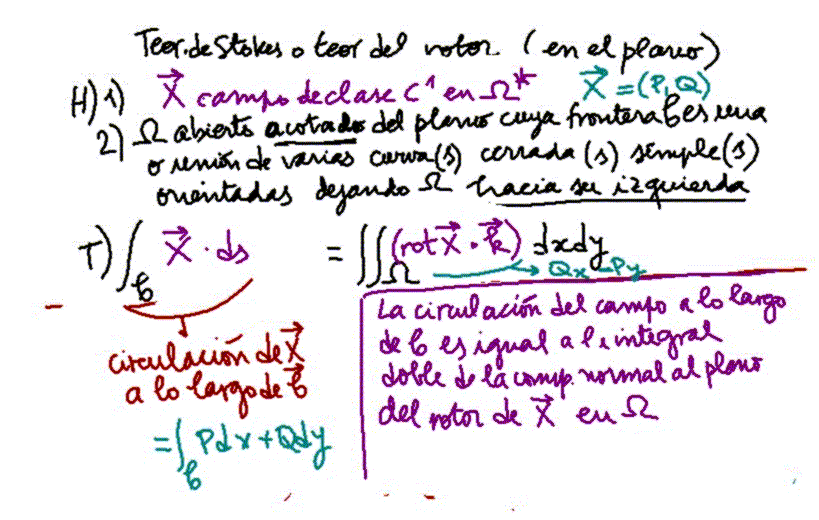 Teor. de Stokes o teor del rotor (en el plano)
H) 1) X⃗ campo de clase C¹ en Ω* X⃗ = (P, Q)
2) Ω abierto acotado del plano cuya frontera ζ es una
o unión de varias curva(s) cerrada(s) simple(s)
orientadas dejando Ω hacia su izquierda
T) ∫_ζ X⃗ · ds = ∬_Ω (rot X⃗ · k⃗) dxdy
→ Qx - Py
circulación de X⃗
a lo largo de ζ⃗
= ∫_ζ Pdx + Qdy
La circulación del campo a lo largo
de ζ es igual a la integral
doble de la comp. normal al plano
del rotor de X⃗ en Ω